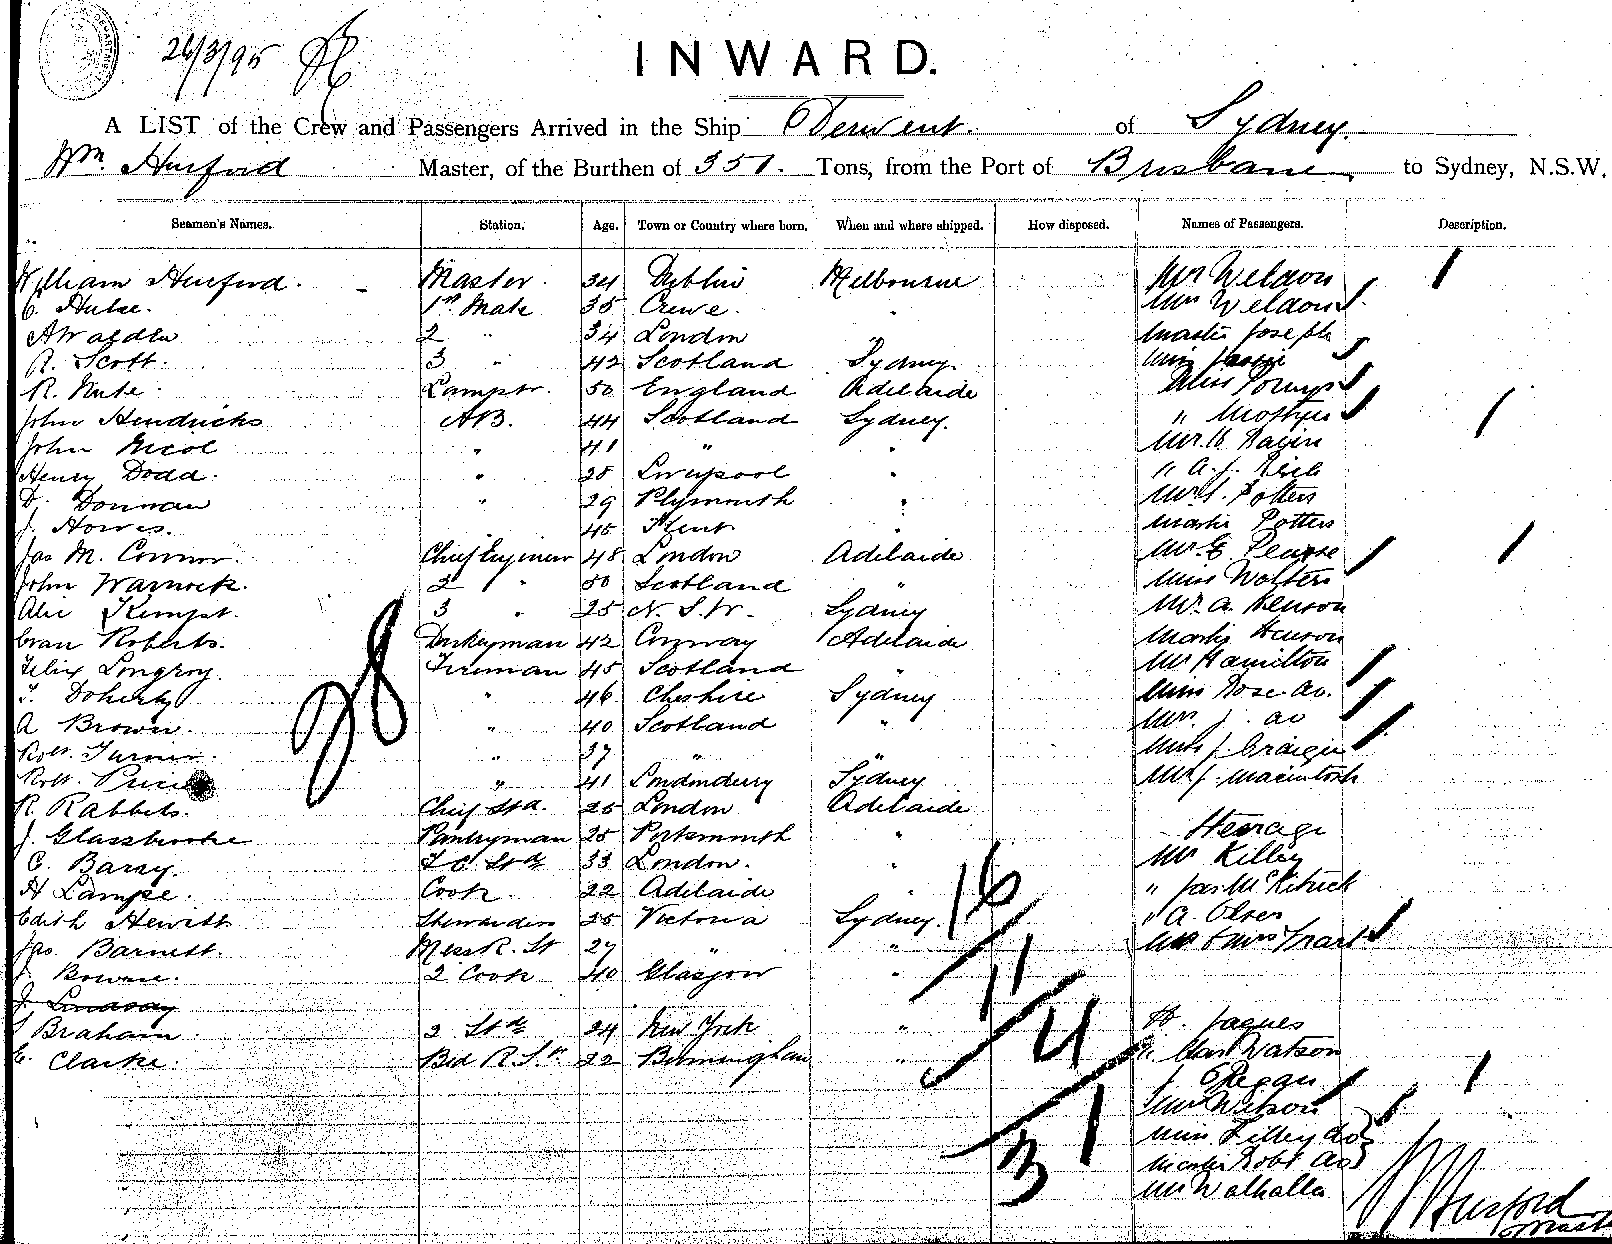 26/3/95
INWARD.
A LIST of the Crew and Passengers Arrived in the Ship Derwent. of Sydney.
Wm. Hurford Master, of the Burthen of 351. Tons, from the Port of Brisbane, to Sydney, N.S.W.
Seamen's Names. Station. Age. Town or Country where born. When and where shipped. How disposed. Names of Passengers. Description.
William Hurford. Master. 34 Dublin Melbourne Mr Weldon
C. Hulse. 1st Mate 35 Crewe. " Weldon
2 " 34 London " Master Joseph
R. Scott. 3 " 42 Scotland Sydney Miss
R. Nute. Lamptr. 50 England Adelaide Miss
John Hendricks AB. 44 Scotland Sydney. " Mostyn
John Nicol " 41 "
Henry Dodd. " 28 Liverpool " " A. J.
D. Donman " 29 Plymouth " Potters
J. Howes. 45 Kent " Master Potters
Jas M. Connor. Chief Engineer 48 London Adelaide Mr. E. Pearse
John Warnock. 2 " 50 Scotland " Miss Wolters
3 " 25 N. S. W. Sydney Mr. A. Henson
Evan Roberts. Donkeyman 42 Conway Adelaide Master Henson
Felix Longroy. Fireman 45 Scotland " Mr Hamilton
T. Doherty " 46 Cheshire Sydney Miss Rose do.
A Brown. " 40 Scotland " J. do
Robt. Turner. " 37 " " J. Craigie
Robt. Price " 41 Londonderry Sydney Mr J. Macintosh
R. Rabbets. Chief Std. 25 London Adelaide
J. Glassbrooke Pantryman 25 Portsmouth " Steerage
C. Barry. 33 London. " Mr Killey
H Lampe. Cook 22 Adelaide " " Jas. McKitrick
Edith Hewitt Stewardess 25 Victoria Sydney. " A. Olsen
Jas. Barnett. Mess R. St 27 " "
J. Bowne. 2 Cook 40 Glasgow "
J. Lindsay
Braham 2 Std 24 New York " Jaques
C. Clarke. Bed R. Sn 22 Birmingham " Watson
Regan
Watson
Miss Lilley do
Master Robt do
Walhalla
98
16
11
4
1
3
Hurford
Master